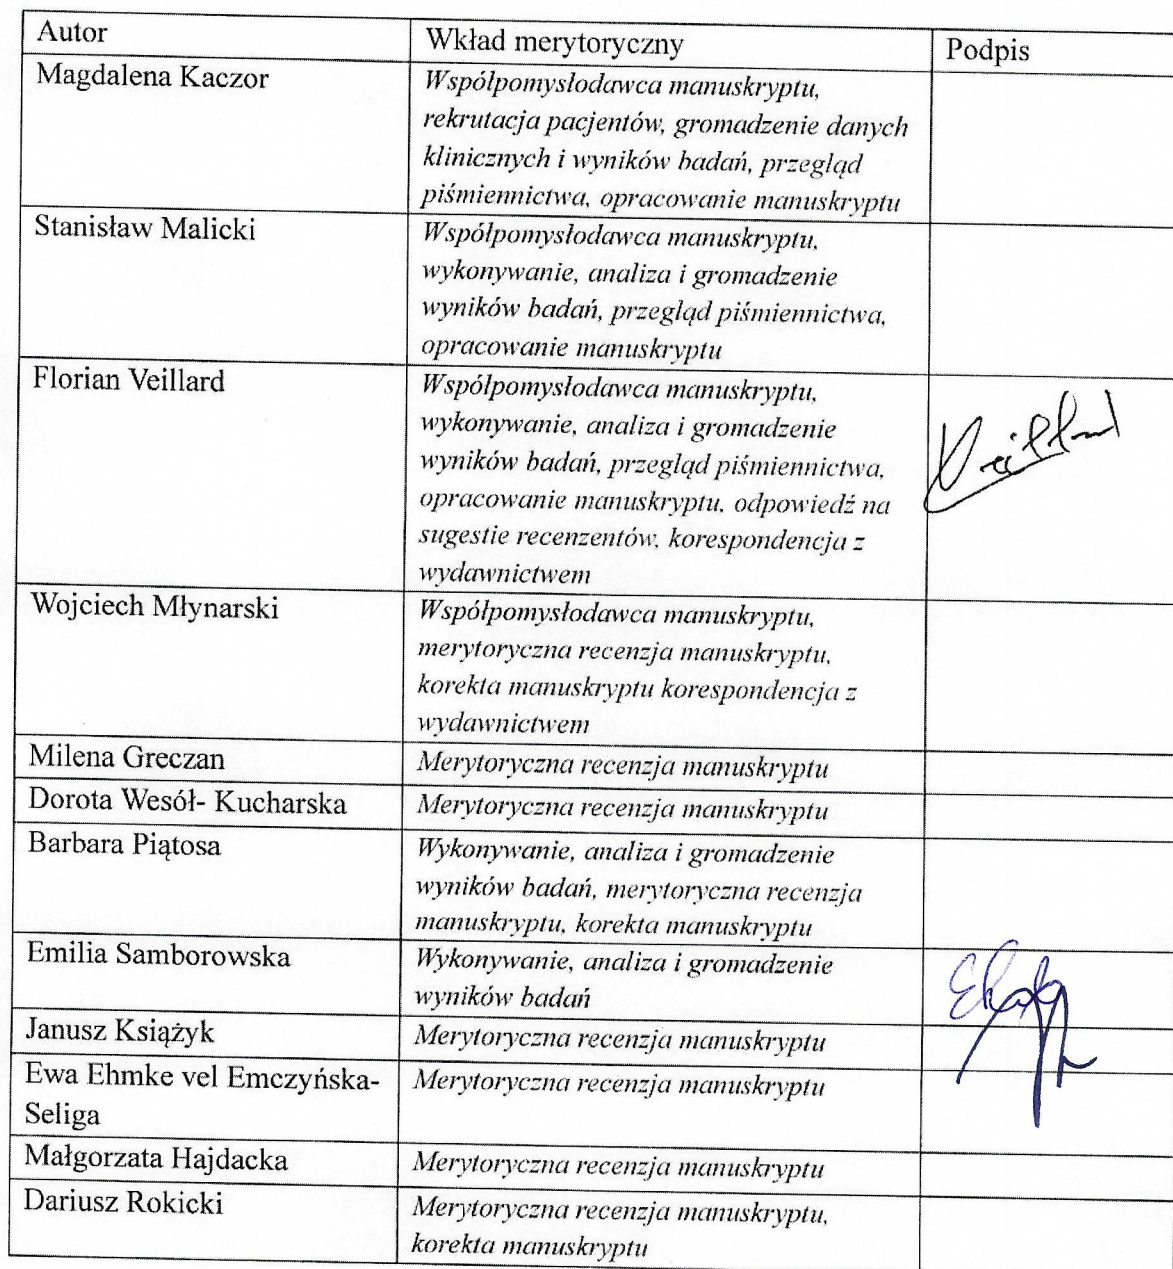 Autor Wkład merytoryczny Podpis
Magdalena Kaczor Współpomysłodawca manuskryptu,
rekrutacja pacjentów, gromadzenie danych
klinicznych i wyników badań, przegląd
piśmiennictwa, opracowanie manuskryptu
Stanisław Malicki Współpomysłodawca manuskryptu,
wykonywanie, analiza i gromadzenie
wyników badań, przegląd piśmiennictwa,
opracowanie manuskryptu
Florian Veillard Współpomysłodawca manuskryptu,
wykonywanie, analiza i gromadzenie
wyników badań, przegląd piśmiennictwa, Veillard
opracowanie manuskryptu, odpowiedź na
sugestie recenzentów, korespondencja z
wydawnictwem
Wojciech Młynarski Współpomysłodawca manuskryptu,
merytoryczna recenzja manuskryptu,
korekta manuskryptu korespondencja z
wydawnictwem
Milena Greczan Merytoryczna recenzja manuskryptu
Dorota Wesół- Kucharska Merytoryczna recenzja manuskryptu
Barbara Piątosa Wykonywanie, analiza i gromadzenie
wyników badań, merytoryczna recenzja
manuskryptu, korekta manuskryptu
Emilia Samborowska Wykonywanie, analiza i gromadzenie
wyników badań
Janusz Książyk Merytoryczna recenzja manuskryptu
Ewa Ehmke vel Emczyńska- Merytoryczna recenzja manuskryptu
Seliga
Małgorzata Hajdacka Merytoryczna recenzja manuskryptu
Dariusz Rokicki Merytoryczna recenzja manuskryptu,
korekta manuskryptu